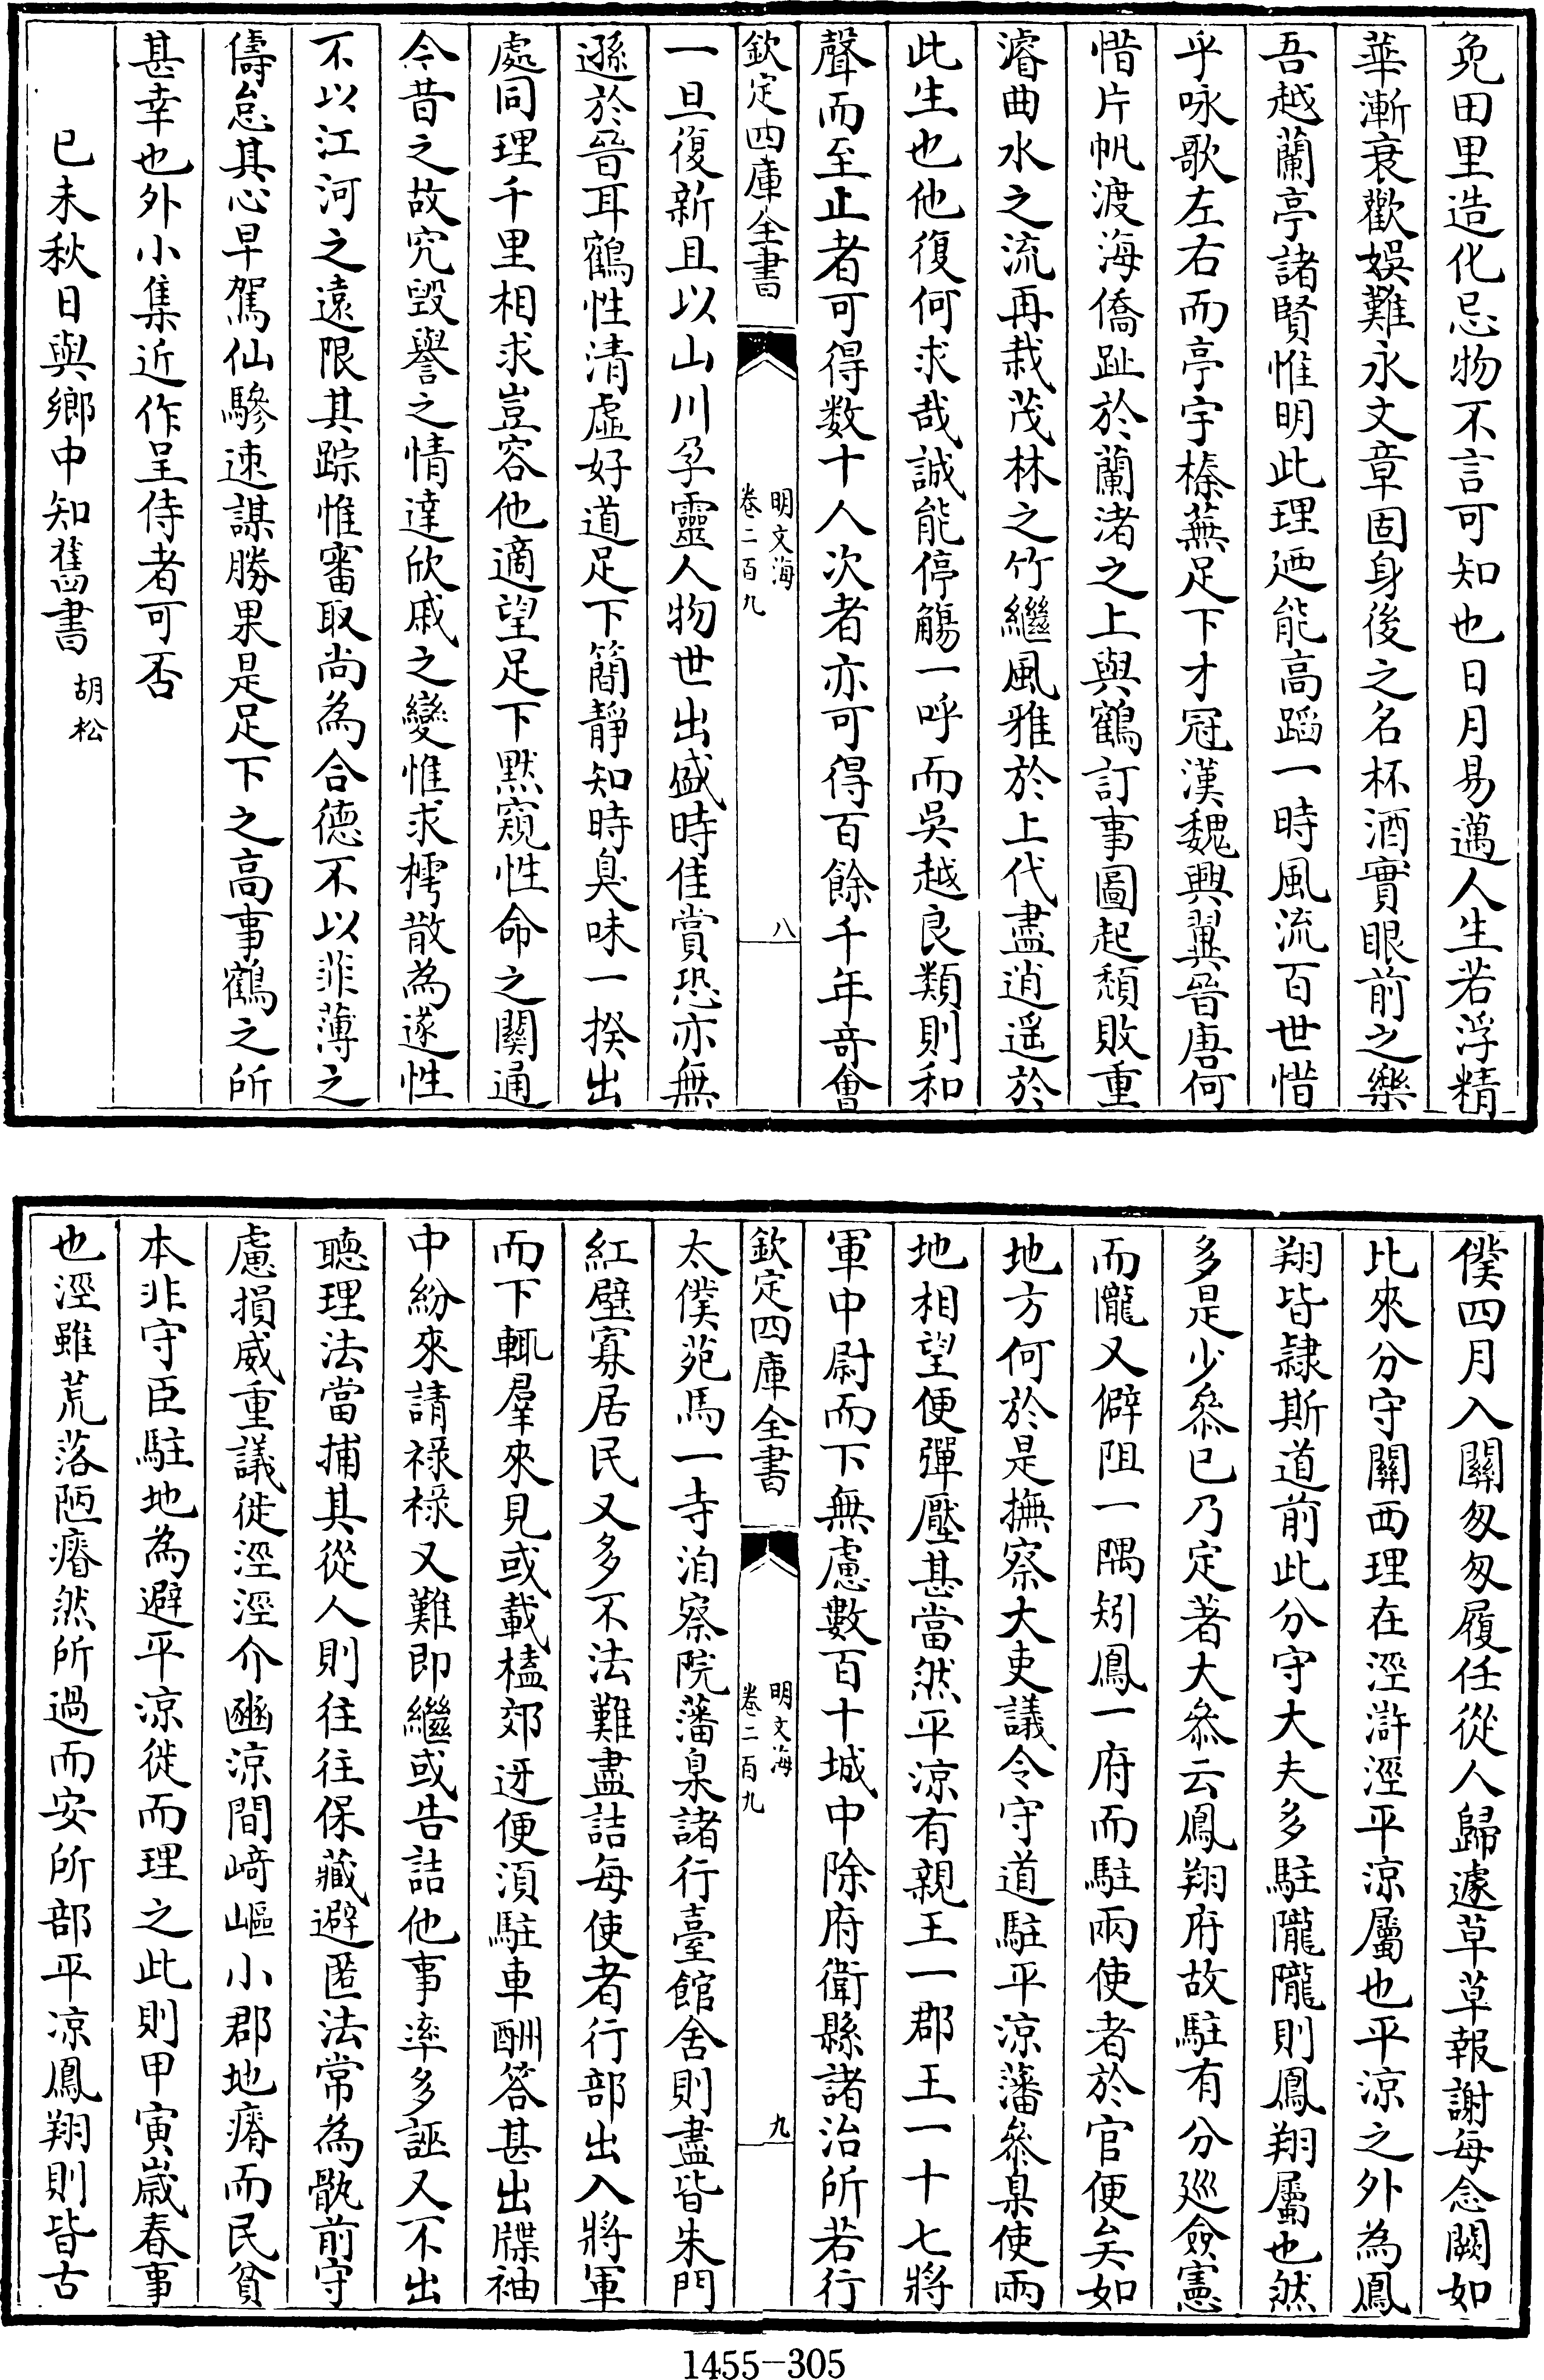 免田里造化忌物不言可知也日月易邁人生若浮精
華漸衰歡娛難永文章固身後之名杯酒實眼前之樂
吾越蘭亭諸賢惟明此理廼能高蹈一時風流百世惜
乎咏歌左右而亭宇榛蕪足下才冠漢魏興翼晉唐何
惜片帆渡海僑趾於蘭渚之上與鶴訂事圖起頹敗重
濬曲水之流再栽茂林之竹繼風雅於上代盡逍遥於
此生也他復何求哉誠能停觴一呼而吳越良類則和
聲而至止者可得数十人次者亦可得百餘千年竒會
欽定四庫全書
明文海
卷二百九
八
一旦復新且以山川孕靈人物世出盛時佳賞恐亦無
遜於晉耳鶴性清虛好道足下簡靜知時臭味一揆出
處同理千里相求豈容他適望足下默窺性命之關通
今昔之故究毀譽之情達欣戚之變惟求樗散為遂性
不以江河之遠限其踪惟審取尚為合德不以菲薄之
儔怠其心早駕仙驂速謀勝果是足下之高事鶴之所
甚幸也外小集近作呈侍者可否
已未秋日與鄉中知舊書
胡松
僕四月入關匆匆履任從人歸遽草草報謝每念闕如
比來分守關西理在涇滸涇平涼屬也平涼之外為鳳
翔皆隷斯道前此分守大夫多駐隴隴則鳳翔屬也然
多是少叅已乃定著大叅云鳳翔府故駐有分廵僉憲
而隴又僻阻一隅矧鳳一府而駐兩使者於官便矣如
地方何於是撫察大吏議令守道駐平涼藩叅臬使兩
地相望便彈壓甚當然平涼有親王一郡王一十七將
軍中尉而下無慮數百十城中除府衛縣諸治所若行
欽定四庫全書
明文海
卷二百九
九
太僕苑馬一寺洎察院藩臬諸行臺館舍則盡皆朱門
紅壁寡居民又多不法難盡詰每使者行部出入將軍
而下輒羣來見或載榼郊迓便湏駐車酬答甚出牒袖
中紛來請祿祿又難即繼或告詰他事率多誣又不出
聽理法當捕其從人則往往保藏避匿法常為骩前守
慮損威重議徙涇涇介豳涼間﨑嶇小郡地瘠而民貧
本非守臣駐地為避平涼徙而理之此則甲寅嵗春事
也涇雖荒落陋瘠然所過而安所部平凉鳳翔則皆古
1455-305